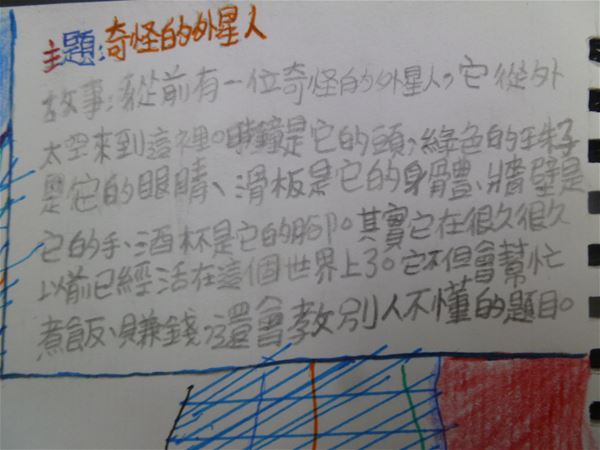 主題:奇怪的外星人
故事:從前有一位奇怪的外星人。它從外
太空來到這裡。時鐘是它的頭、綠色的珠子
是它的眼睛、滑板是它的身體、牆壁是
它的手、酒杯是它的腳。其實它在很久很久
以前已經活在這個世界上了。它不但會幫忙
煮飯、賺錢,還會教別人不懂的題目。